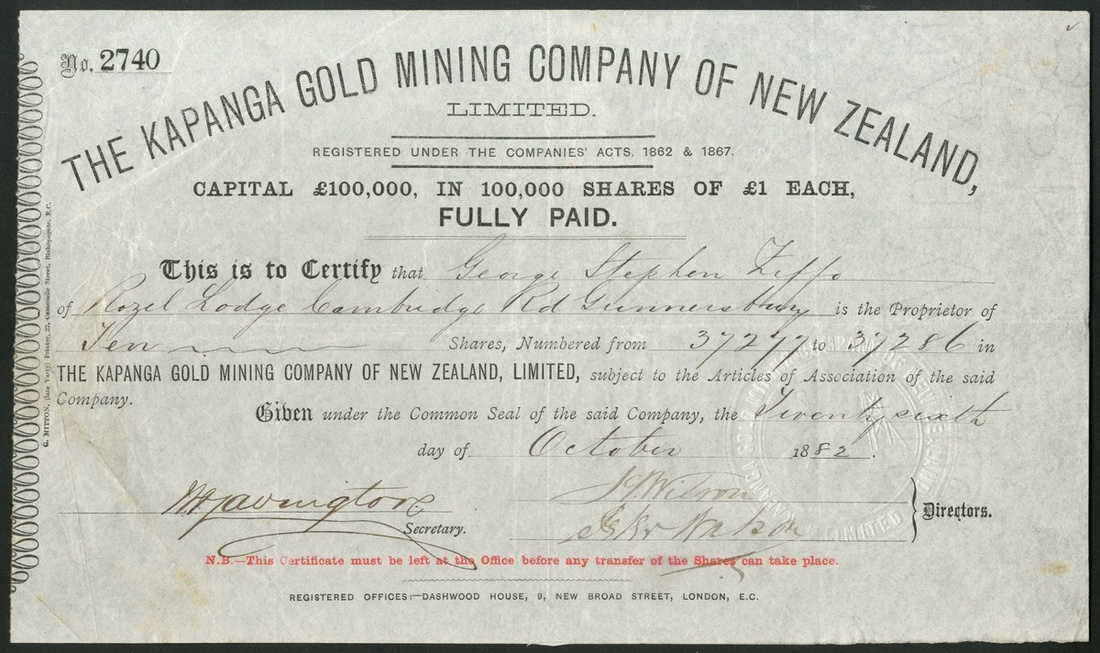 No. 2740
THE KAPANGA GOLD MINING COMPANY OF NEW ZEALAND,
LIMITED.
REGISTERED UNDER THE COMPANIES' ACTS, 1862 & 1867.
CAPITAL £100,000, IN 100,000 SHARES OF £1 EACH,
FULLY PAID.
This is to Certify that George Stephen Ziffo
of Rozel Lodge Cambridge Rd Gunnersbury is the Proprietor of
Ten Shares, Numbered from 37277 to 37286 in
THE KAPANGA GOLD MINING COMPANY OF NEW ZEALAND, LIMITED, subject to the Articles of Association of the said
Company.
Given under the Common Seal of the said Company, the Twenty sixth
day of October 1882.
Secretary.
Directors.
N.B.—This Certificate must be left at the Office before any transfer of the Shares can take place.
REGISTERED OFFICES:—DASHWOOD HOUSE, 9, NEW BROAD STREET, LONDON, E.C.